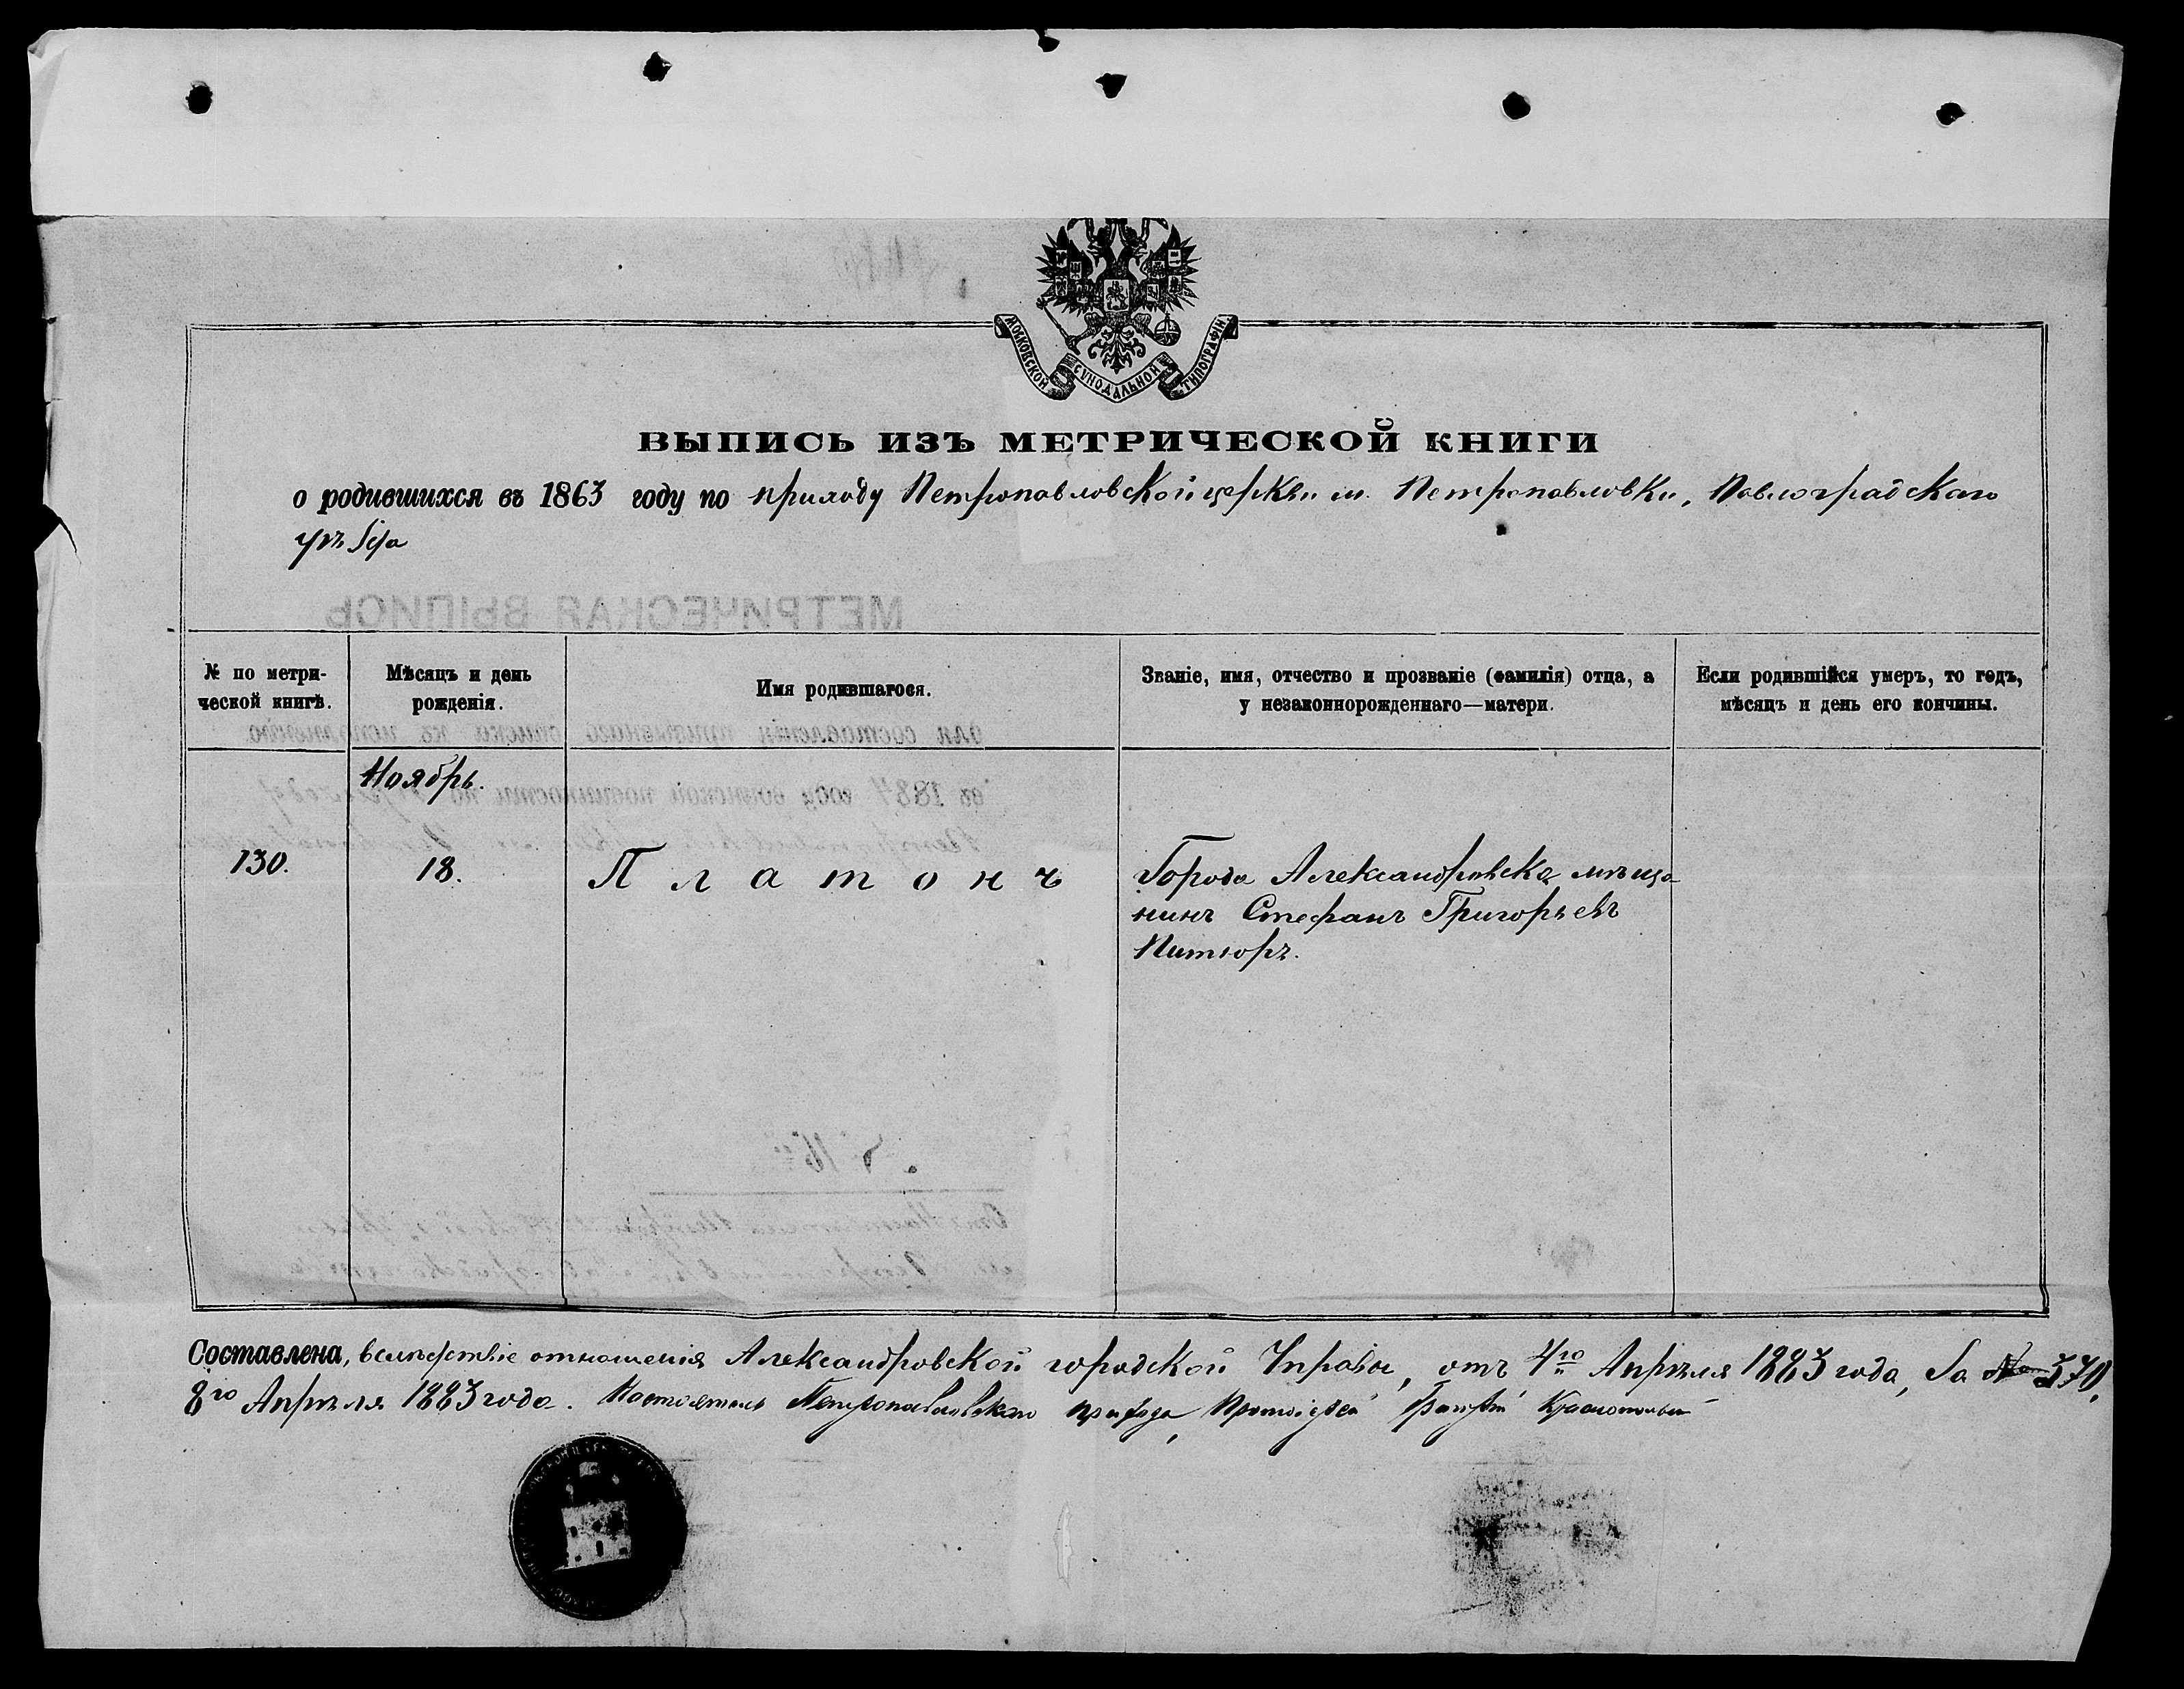 МОСКОВСКОЙ СУНОДАЛЬНОЙ ТИПОГРАФІИ.
ВЫПИСЬ ИЗЪ МЕТРИЧЕСКОЙ КНИГИ
о родившихся въ 1863 году по приходу Петропавловской церкви м. Петропавловки, Павлоградскаго
уѣзда
МЕТРИЧЕСКАЯ ВЫПИСЬ
№ по метри-
ческой книгѣ.
Мѣсяцъ и день
рожденія.
Имя родившагося.
Званіе, имя, отчество и прозваніе (фамилія) отца, а
у незаконнорожденнаго—матери.
Если родившійся умеръ, то годъ,
мѣсяцъ и день его кончины.
для составленія призывнаго списка къ исполненію
въ 1884 году воинской повинности по приходу
Ноябрь.
130.
18.
Платонъ
Города Александровска мѣща-
нинъ Стефанъ Григорьевъ
Питюръ.
Составлена, вслѣдствіе отношенія Александровской городской Управы, отъ 4го Апрѣля 1883 года, за № 370.
8го Апрѣля 1883 года. Настоятель Петропавловскаго прихода, Протоіерей